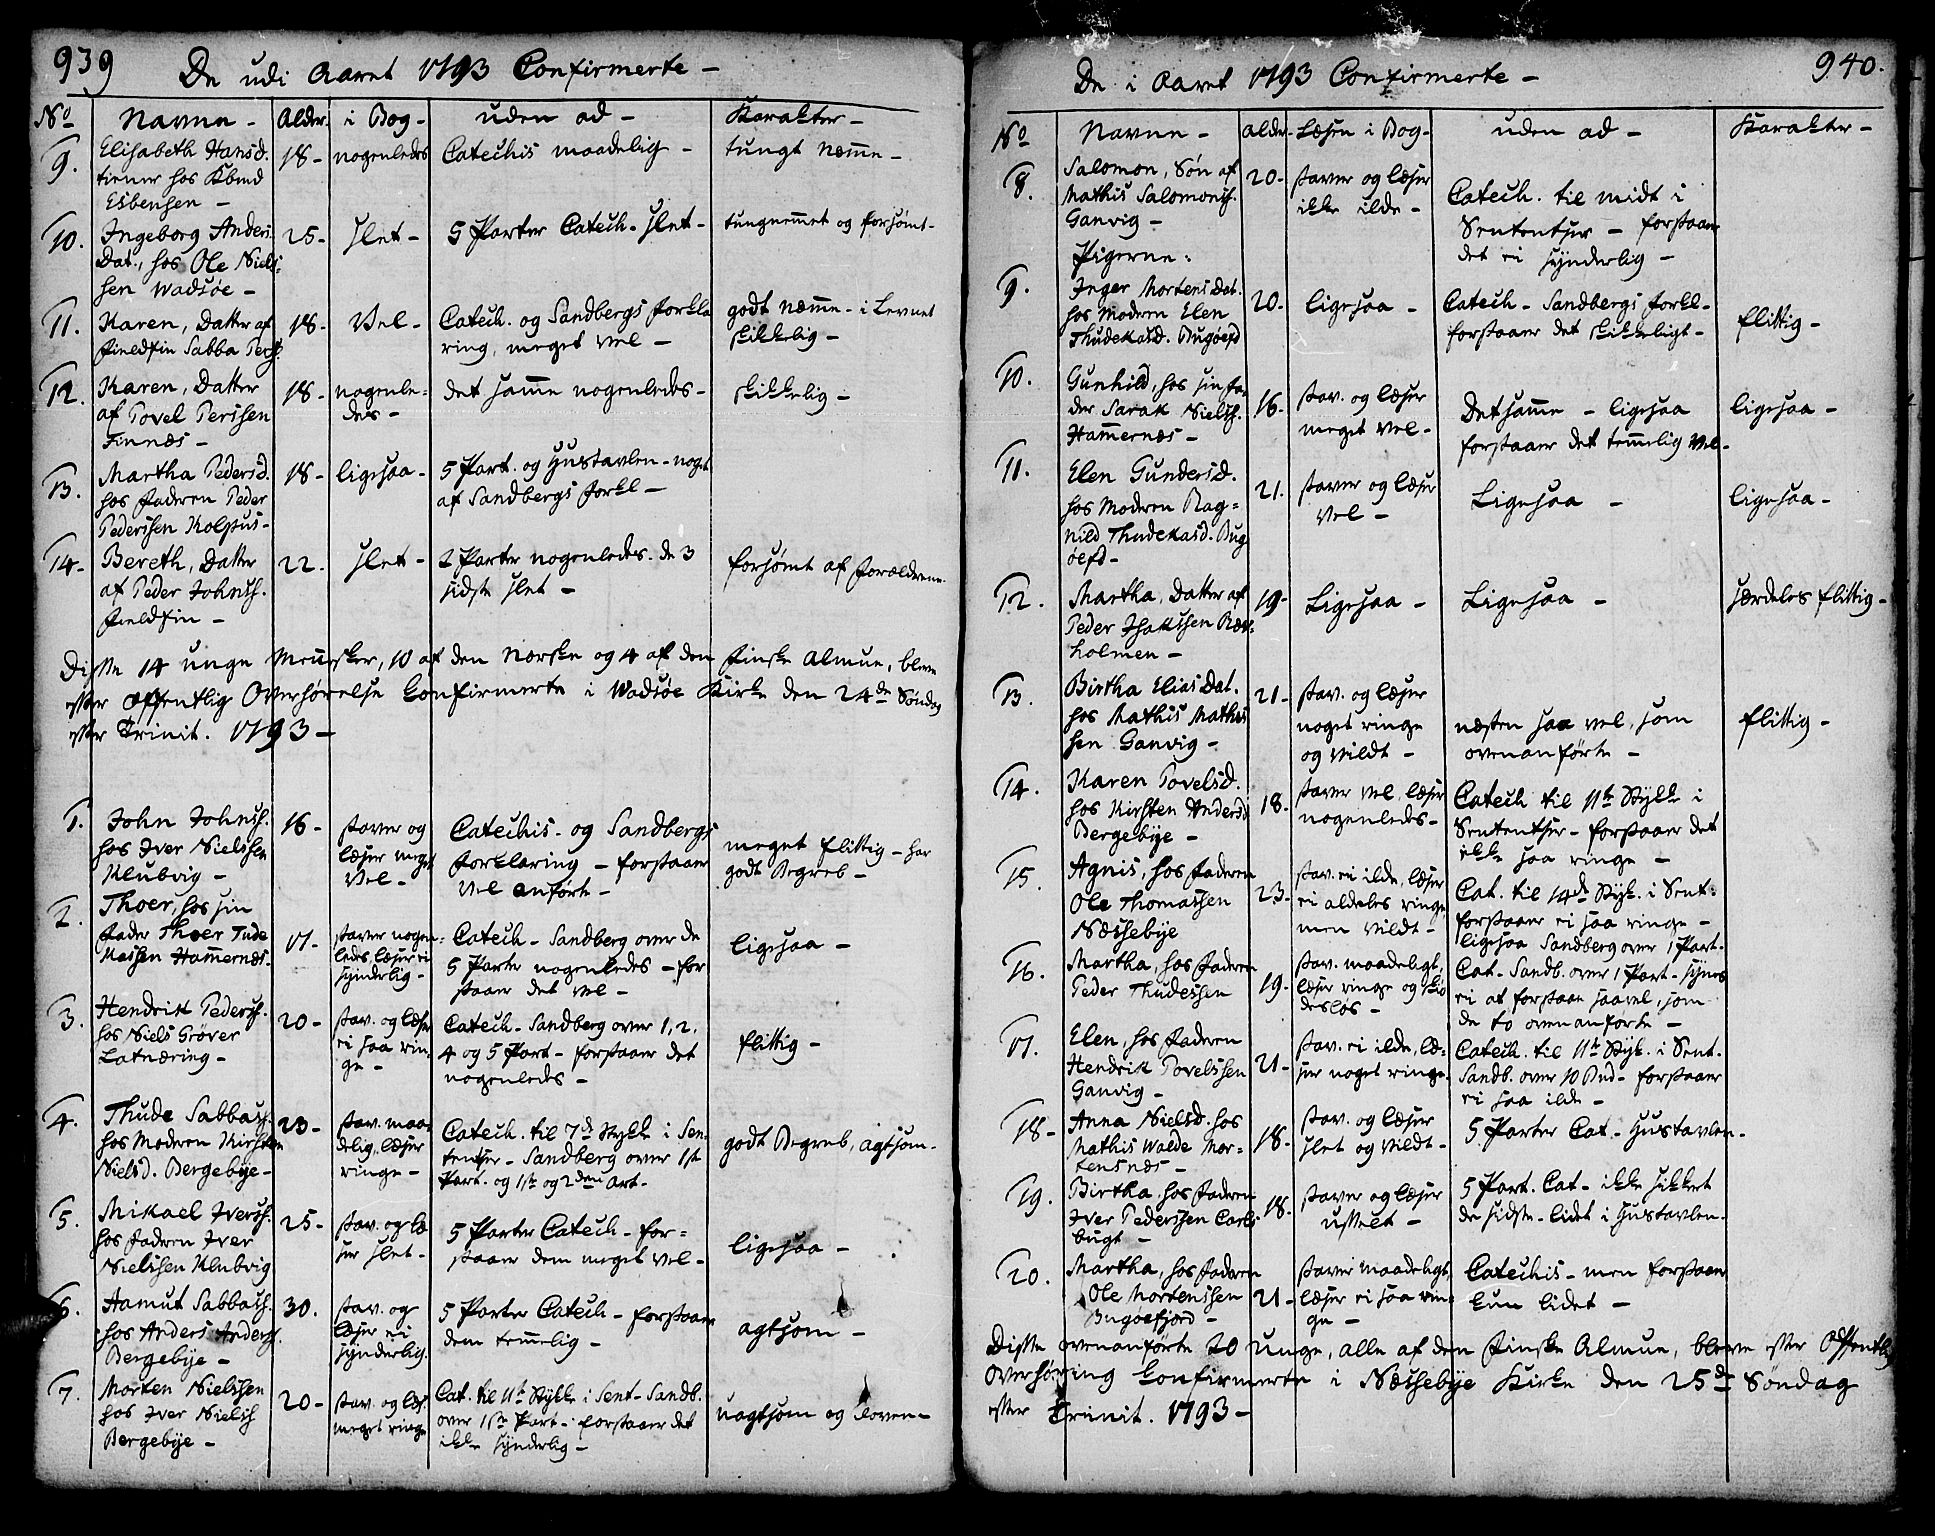 939
De udi Aaret 1793 Confirmerte -
No Navne - Alder. i Bog - uden ad - Karakter -
9. Elisabeth Hansd. 18 - nogenledes Catechis maadelig - tungt Næmme -
tiener hos Kbmd
Esbensen -
10. Ingeborg Anders 25 - slet - 5 Parter Catech. slet - tungnemmet og forsømt -
Dat., hos Ole Niels=
sen Wadsøe -
11. Karen, Datter af 18 - Vel - Catech. og Sandbergs Forkla godt Næmme - i Levnet
Fieldfin Sabba Perss. ring, meget vel - skikkelig -
12. Karen, Datter 18 - nogenle= det samme nogenledes - skikkelig -
af Povel Perssen des -
Finnæs -
13. Martha Pedersd. 18 - ligesaa - 5 Part. og Hustavlen - noget
hos Faderen Peder af Sandbergs Forkl -
Pederssen Holstus -
14. Bereth, Datter 22. slet - 2 Parter nogenledes. de 3 forsømt af Forældrene
af Peder Johnss. sidste slet -
Fieldfin -
Disse 14 unge Mennesker, 10 af den Norske og 4 af den Finske Almue, bleve
efter offentlig Overhørelse Confirmerte i Wadsøe Kirke den 24de Søndag
efter Trinit. 1793 -
1. John Johnss. 16 - staver og Catechis - og Sandbergs meget flittig - har
hos Iver Nielssen læser meget Forklaring - forstaaer godt Begreb -
Klubvig - Vel - Vel anførte -
2. Thoer, hos sin 17. staver nogen= Catech - Sandberg over de ligesaa -
Fader Thoer Tude ledes læser ei 5 Parter nogenledes - for
Kassen Hammernæs - synderlig - staaer det vel -
3. Hendrik Pederss. 20 - stav. og læser Catech - Sandberg over 1, 2, flittig -
hos Niels Grøver ei saa rin= 4 og 5 Part - forstaaer det
Latnæring - ge - nogenleds -
4. Thude Sabbass. 23 - stav. maa= Catech. til 7de Stykke i Sen= godt Begreb, agtsom -
hos Moderen Kirsten delig, læser tentser - Sandberg over 1st
Nielsd. Bergebye - ringe - Part. og 1ste og 2den Art -
5. Mikael Iverss. 25 - stav. og læ= 5 Parter Catech - for= ligesaa -
hos Faderen Iver ser slet - staaer dem meget vel -
Nielssen Klubvig
6. Aamut Sabbass. 30. stav. og 5 Parter Catech - forstaaer agtsom -
hos Anders Anderss. læser ei dem temmelig -
Bergebye - synderlig.
7. Morten Nielssen 20 - stav. og læs. Cat. til 11te Stykke i Sent - Sandb. uagtsom og doven -
hos Iver Nielss meget ringe over 1ste Part - forstaaer det
Bergebye - ikke synderlig -
940.
De i Aaret 1793 Confirmerte -
No Navne - alder - Læser i Bog - uden ad - Karakter -
8. Salomon, Søn af 20 - staver og læser Catech. til midt i
Mathis Salomonss. ikke ilde - Sententser - forstaaer
Ganvig - det ei synderlig -
Pigerne:
9. Inger Mortens Dat. 20. ligesaa - Catech - Sandbergs Forkl - flittig -
hos Moderen Elen forstaaer det skikkeligt -
Thudekasd. Bugøefd
10. Gunhild, hos sin Fa= 16 - stav. og læser Det samme - ligesaa ligesaa -
der Sarak Nielss. meget vel - forstaaer det temmelig vel -
Hammernæs -
11. Elen Gundersd. 21. staver og læser Ligesaa - ligesaa -
hos Moderen Rag= vel -
nild Thudekasd. Bug
øefd -
12. Martha, Datter af 19 - Ligesaa - Ligesaa - særdeles flittig -
Peder Isakssen Ræv=
holmen -
13. Birtha Elias Dat. 21 - stav. og læser næsten saa vel, som flittig -
hos Mathis Mathis noget ringe ovenanførte -
sen Ganvig - og vildt -
14. Karen Povelsd. 18. staver vel, læser Catech til 11te Stykke i
hos Kirsten Andersd nogenleds - Sententser - forstaaer det
Bergebye - ikke saa ringe -
15. Agnis, hos Faderen 23 - stav. ei ilde, læser Cat. til 14de Styk. i Sent:
Ole Thomassen ei aldeles ringe forstaaer ei saa ringe -
Næssebye men vildt - ligesaa Sandberg over 1 Part.
16. Martha, hos Faderen 19. stav. maadeligt, Cat - Sandb. over 1 Part - synes
Peder Thudessen læser ringe og skiø ei at forstaae saavel, som
desløs - de to ovenanførte -
17. Elen, hos Faderen 21 - stav. ei ilde, læ= Catech. til 11te Styk. i Sent.
Hendrik Povelssen ser noget ringe. Sandb. over 10 Bud - forstaaer
Ganvig - ei saa ilde -
18 - Anna Nielsd. hos 18 - stav. og læser 5 Parter Cat - Hustavlen -
Mathis Walde Mor= slet og vildt -
tensnæs -
19. Birtha, hos Faderen 18. staver og læser 5 Part. Cat - ikke sikkert
Iver Pederssen Carls= usselt - de sidste - lidet i Hustavlen -
bugt -
20. Martha, hos Faderen 21 - staver maadeligt, Catechis - men forstaaer
Ole Mortenssen læser ei saa rin= kun lidet -
Bugøefjord - ge -
Disse ovenanførte 20 unge, alle af den Finske Almue, bleve efter Offentlig
Overhøring Confirmerte i Næssebye Kirke den 25de Søndag
efter Trinit. 1793 -